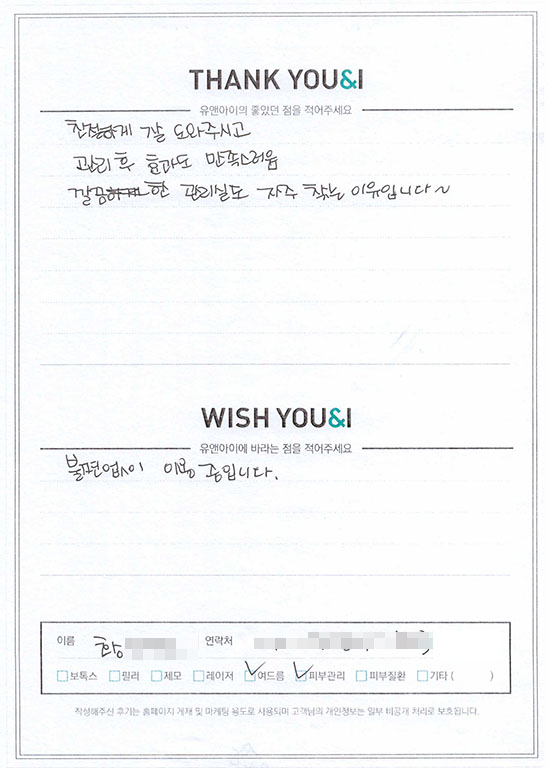 THANK YOU&I
유앤아이의 좋았던 점을 적어주세요
친절하게 잘 도와주시고
관리 후 효과도 만족스러움
깔끔한 관리실도 자주 찾는 이유입니다~
WISH YOU&I
유앤아이에 바라는 점을 적어주세요
불편없이 이용중입니다.
이름 황 연락처
보톡스 필러 제모 레이저 여드름 피부관리 피부질환 기타 ( )
작성해주신 후기는 홈페이지 게재 및 마케팅 용도로 사용되며 고객님의 개인정보는 일부 비공개 처리로 보호됩니다.